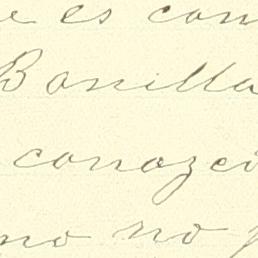 e es con
Bonilla
conozco
mo no p